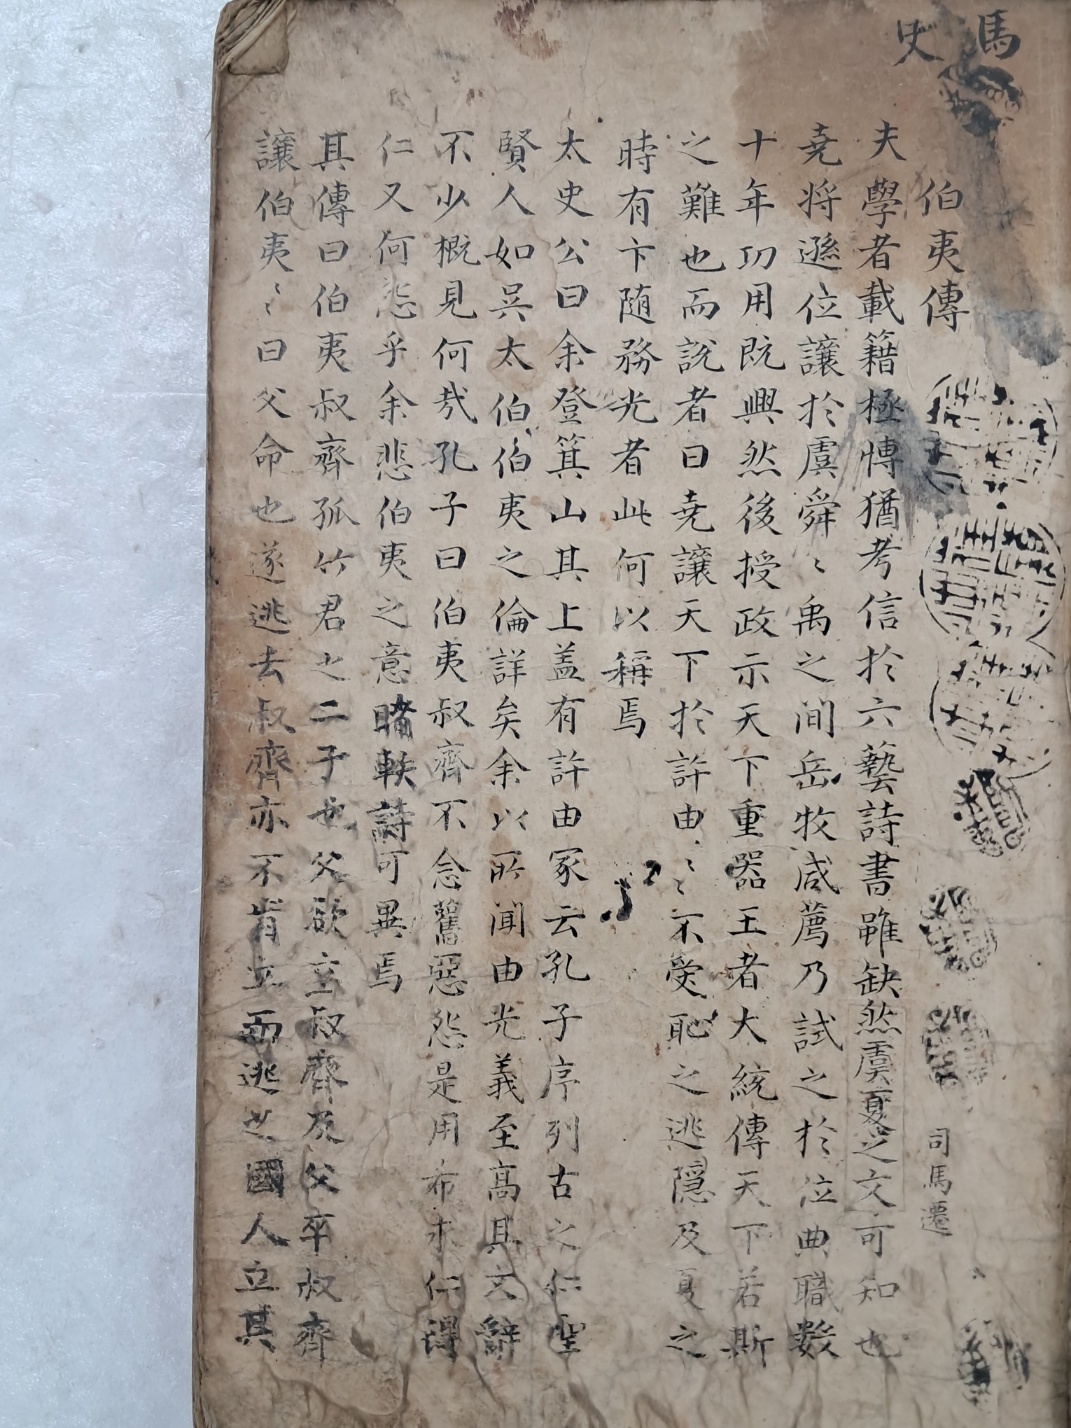 馬史
伯夷傳
司馬遷
夫學者載籍極愽猶考信於六藝詩書雖缺然虞夏之文可知也
堯將遜位讓於虞舜〻禹之间岳牧咸薦乃試之於位典職数
十年功用既興然後授政示天下重器王者大統傳天下若斯
之難也而說者曰堯讓天下於許由〻不受恥之逃隱及夏之
時有卞随務光者此何以稱焉
太史公曰余登箕山其上盖有許由冢云孔子序列古之仁聖
賢人如吳太伯伯夷之倫詳矣余以所闻由光義至高其文辭
不少概見何㢤孔子曰伯夷叔齊不念舊惡怨是用希求仁得
仁又何怨乎余悲伯夷之意睹軼詩可異焉
其傳曰伯夷叔齊孤竹君之二子也父欲立叔齊及父卒叔齊
讓伯夷〻曰父命也遂逃去叔齊亦不肯立而逃之國人立其